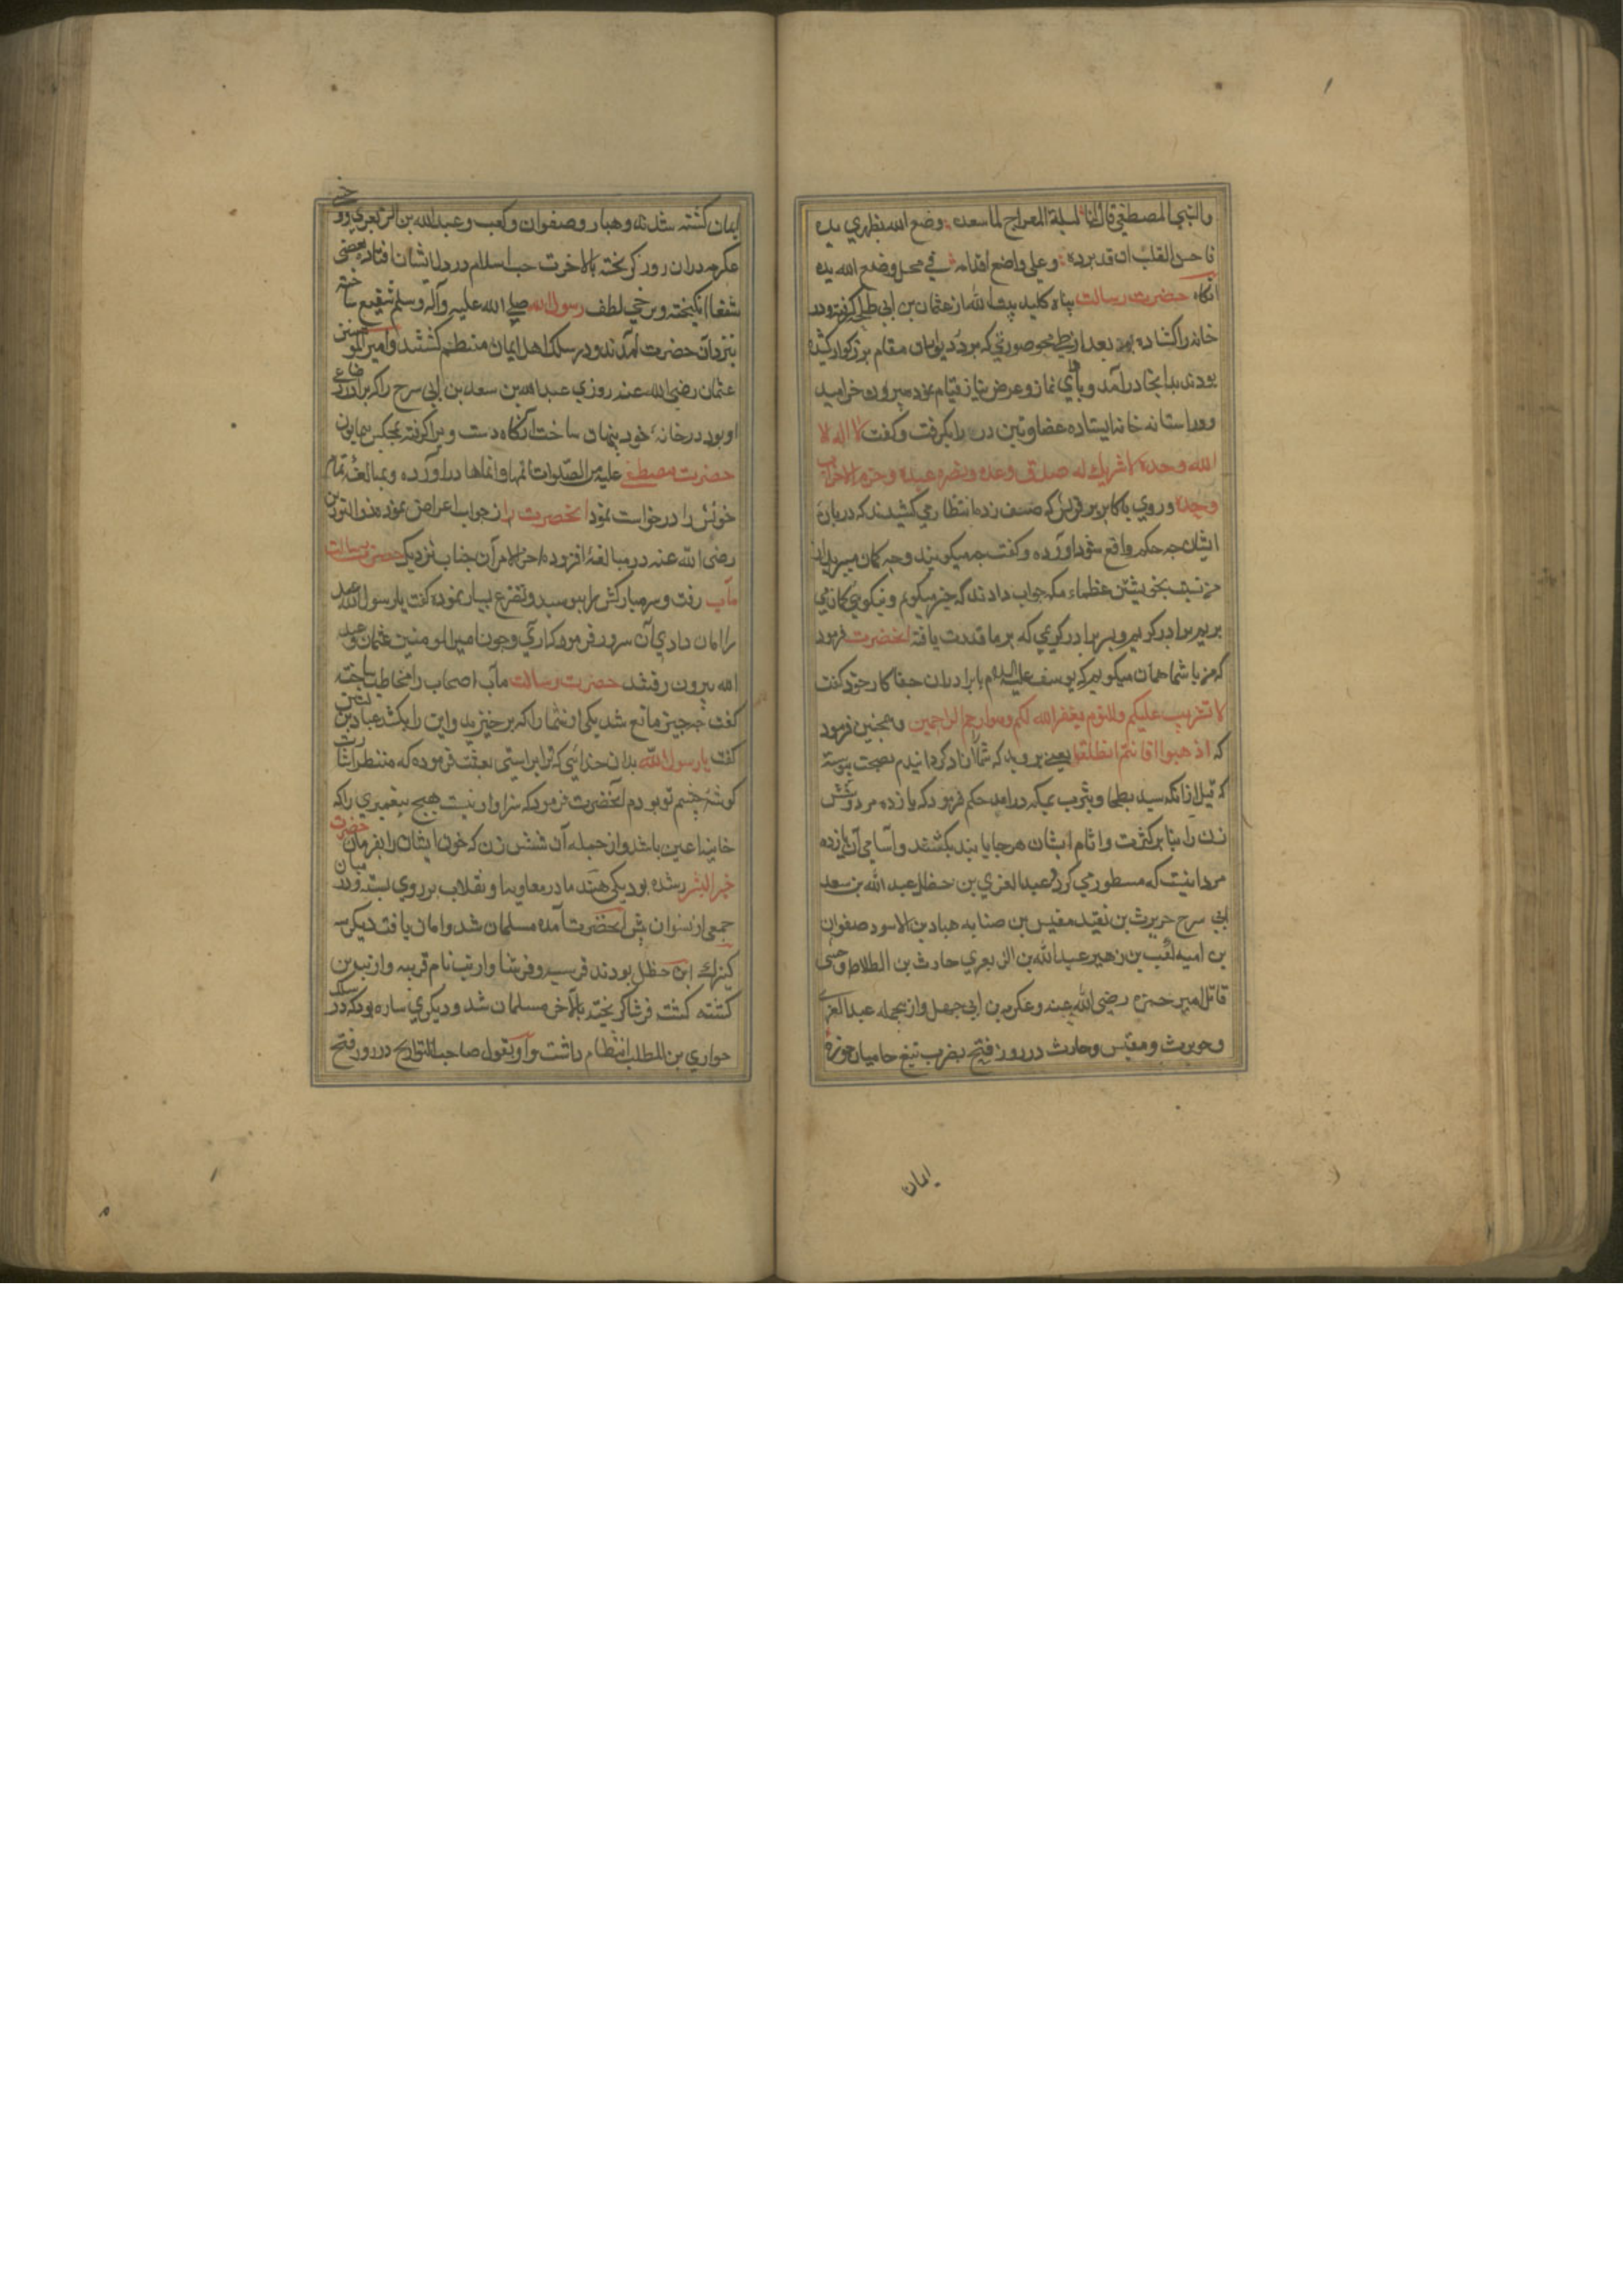 والنبي المصطفي قال لنا لسیلة المعراج لما سعده وضع الله بظهري یده
فاحس القلب ان قد برده وعلي واضع اقدامه في محل وضع الله یده
انکاه حضرت رسالت پناه کلید بیت الله از عثمان بن ابي طلحه کرفته ودر
خانه را کشاده بود بعد از محو صورتي که بر در دیوار ان مقام بزرکوار کشیده
بودند بدانجا درآمد و باداي نماز وعرض نیاز قیام نموده بیرون خرامید
وور استانه خانه ایستاده عضاوتین در را بکرفت وکفت لا اله الا
الله وحده لا شریك له صدق وعده ونصر عبده وحزم الاحزاب
وحده وروي باکابر قریش که صف زده انتظار مي کشیدند که در باره
ایشان چه حکم واقع شود اورده وکفت چه میکویند وچه کمان میبرید از
من نسبت بخویشتن عظماء مکه جواب دادند که خیر میکویم و نیکویي کمان مي
بریم برادر کریم وپسر برادر کریمي که بر ما قدرت یافته انحضرت فرمود
که من با شما همان میکویم که یوسف علیه السلام با برادران جفا کار خود کفت
لا تثریب علیکم والیوم یغفر الله لکم وهو ارحم الراحمین وهمچنین فرمود
که اذهبوا فانتم الطلقا یعني بروید که شما را آزاد کردانیدم بصحت پیوسته
که قبل ازانکه سید بطحا ویثرب بمکه درامد حکم فرمود که یازده مرد وشش
زن را بنا بر کثرت واثام ایشان هر جا یابند بکشند واسامي آن یازده
مرد اینست که مسطور مي کردد عبد العزي بن حنظل عبد الله بن سعد
ابي سرح حریرث بن نقید مقیس بن صنابه هبار بن الاسود صفوان
بن امیه کعب بن زهیر عبد الله بن الزبعري حارث بن الطلاطل وحشي
قاتل امیر حمزه رضي الله عنه وعکرمه بن ابي جهل واز بجمله عبد العزي
وحویرث ومقیس وحارث در روز فتح بضرب تیغ حامیان حوزه
ایمان
ایمان کشته شدند وهبار وصفوان وکعب وعبد الله بن الزبعري ووحشي
عکرمه دران روز کریخته بالاخرت حب اسلام در دل ایشان افتاده بعضي
شفعا انکیخته وبرخي لطف رسول الله صلي الله علیه وآله وسلم شفیع ساخته
بنزد آن حضرت آمدند ودر سلك اهل ایمان منتظم کشتند وامیر المومنین
عثمان رضي الله عنه روزي عبد الله بن سعد بن ابي سرح را که برادر رضاعي
او بود در خانه خود پنهان ساخت آنکاه دست ویرا کرفته بمجلس همایون
حضرت مصطفي علیه من الصلوات اتمها وانماها دراورده وبمبالغه تمام
خونش را درخواست نمود انحضرت از جواب اعراض نموده ذو النورین
رضي الله عنه در مبالغه افزوده اخر الامر آن جناب نزدیك حضرت رسالت
مآب رفت وسر مبارکش را ببوسید وتضرع بسیار نموده کفت یا رسول الله عبد
را امان دادي آن سرور فرمود که آري وچون امیر المومنین عثمان وعبد
الله بیرون رفتند حضرت رسالت مآب اصحاب را مخاطب ساخته
کفت چه چیز مانع شد یکي از شما را که بر خیزید واین را بکشد عباد بن بشر
کفت یا رسول الله بدان خدائي که ترا براستي بعثت فرموده که منتظر اشارت
کوشه چشم تو بودم آنحضرت فرمود که سزاوار نیست هیچ پیغمبري را که
خاینه اعین باشد واز جمله آن شش زن که خون ایشان را بفرمان حضرت
خیر البشر رسیده بود یکي هند مادر معاویه ... نقاب بر روي بسته ودر میان
جمعي از نسوان پیش آنحضرت آمده مسلمان شد وامان یافت دیکر سه
کنیزك ابن حنظل بودند قریبه وفرشا وارنب نام قریبه وارنب
کشته کشت فرشا کریخته بالاخر مسلمان شد ودیکري ساره بود که در سلك
جواري بني المطلب انتظام داشت واو بقول صاحب التواریخ در روز فتح